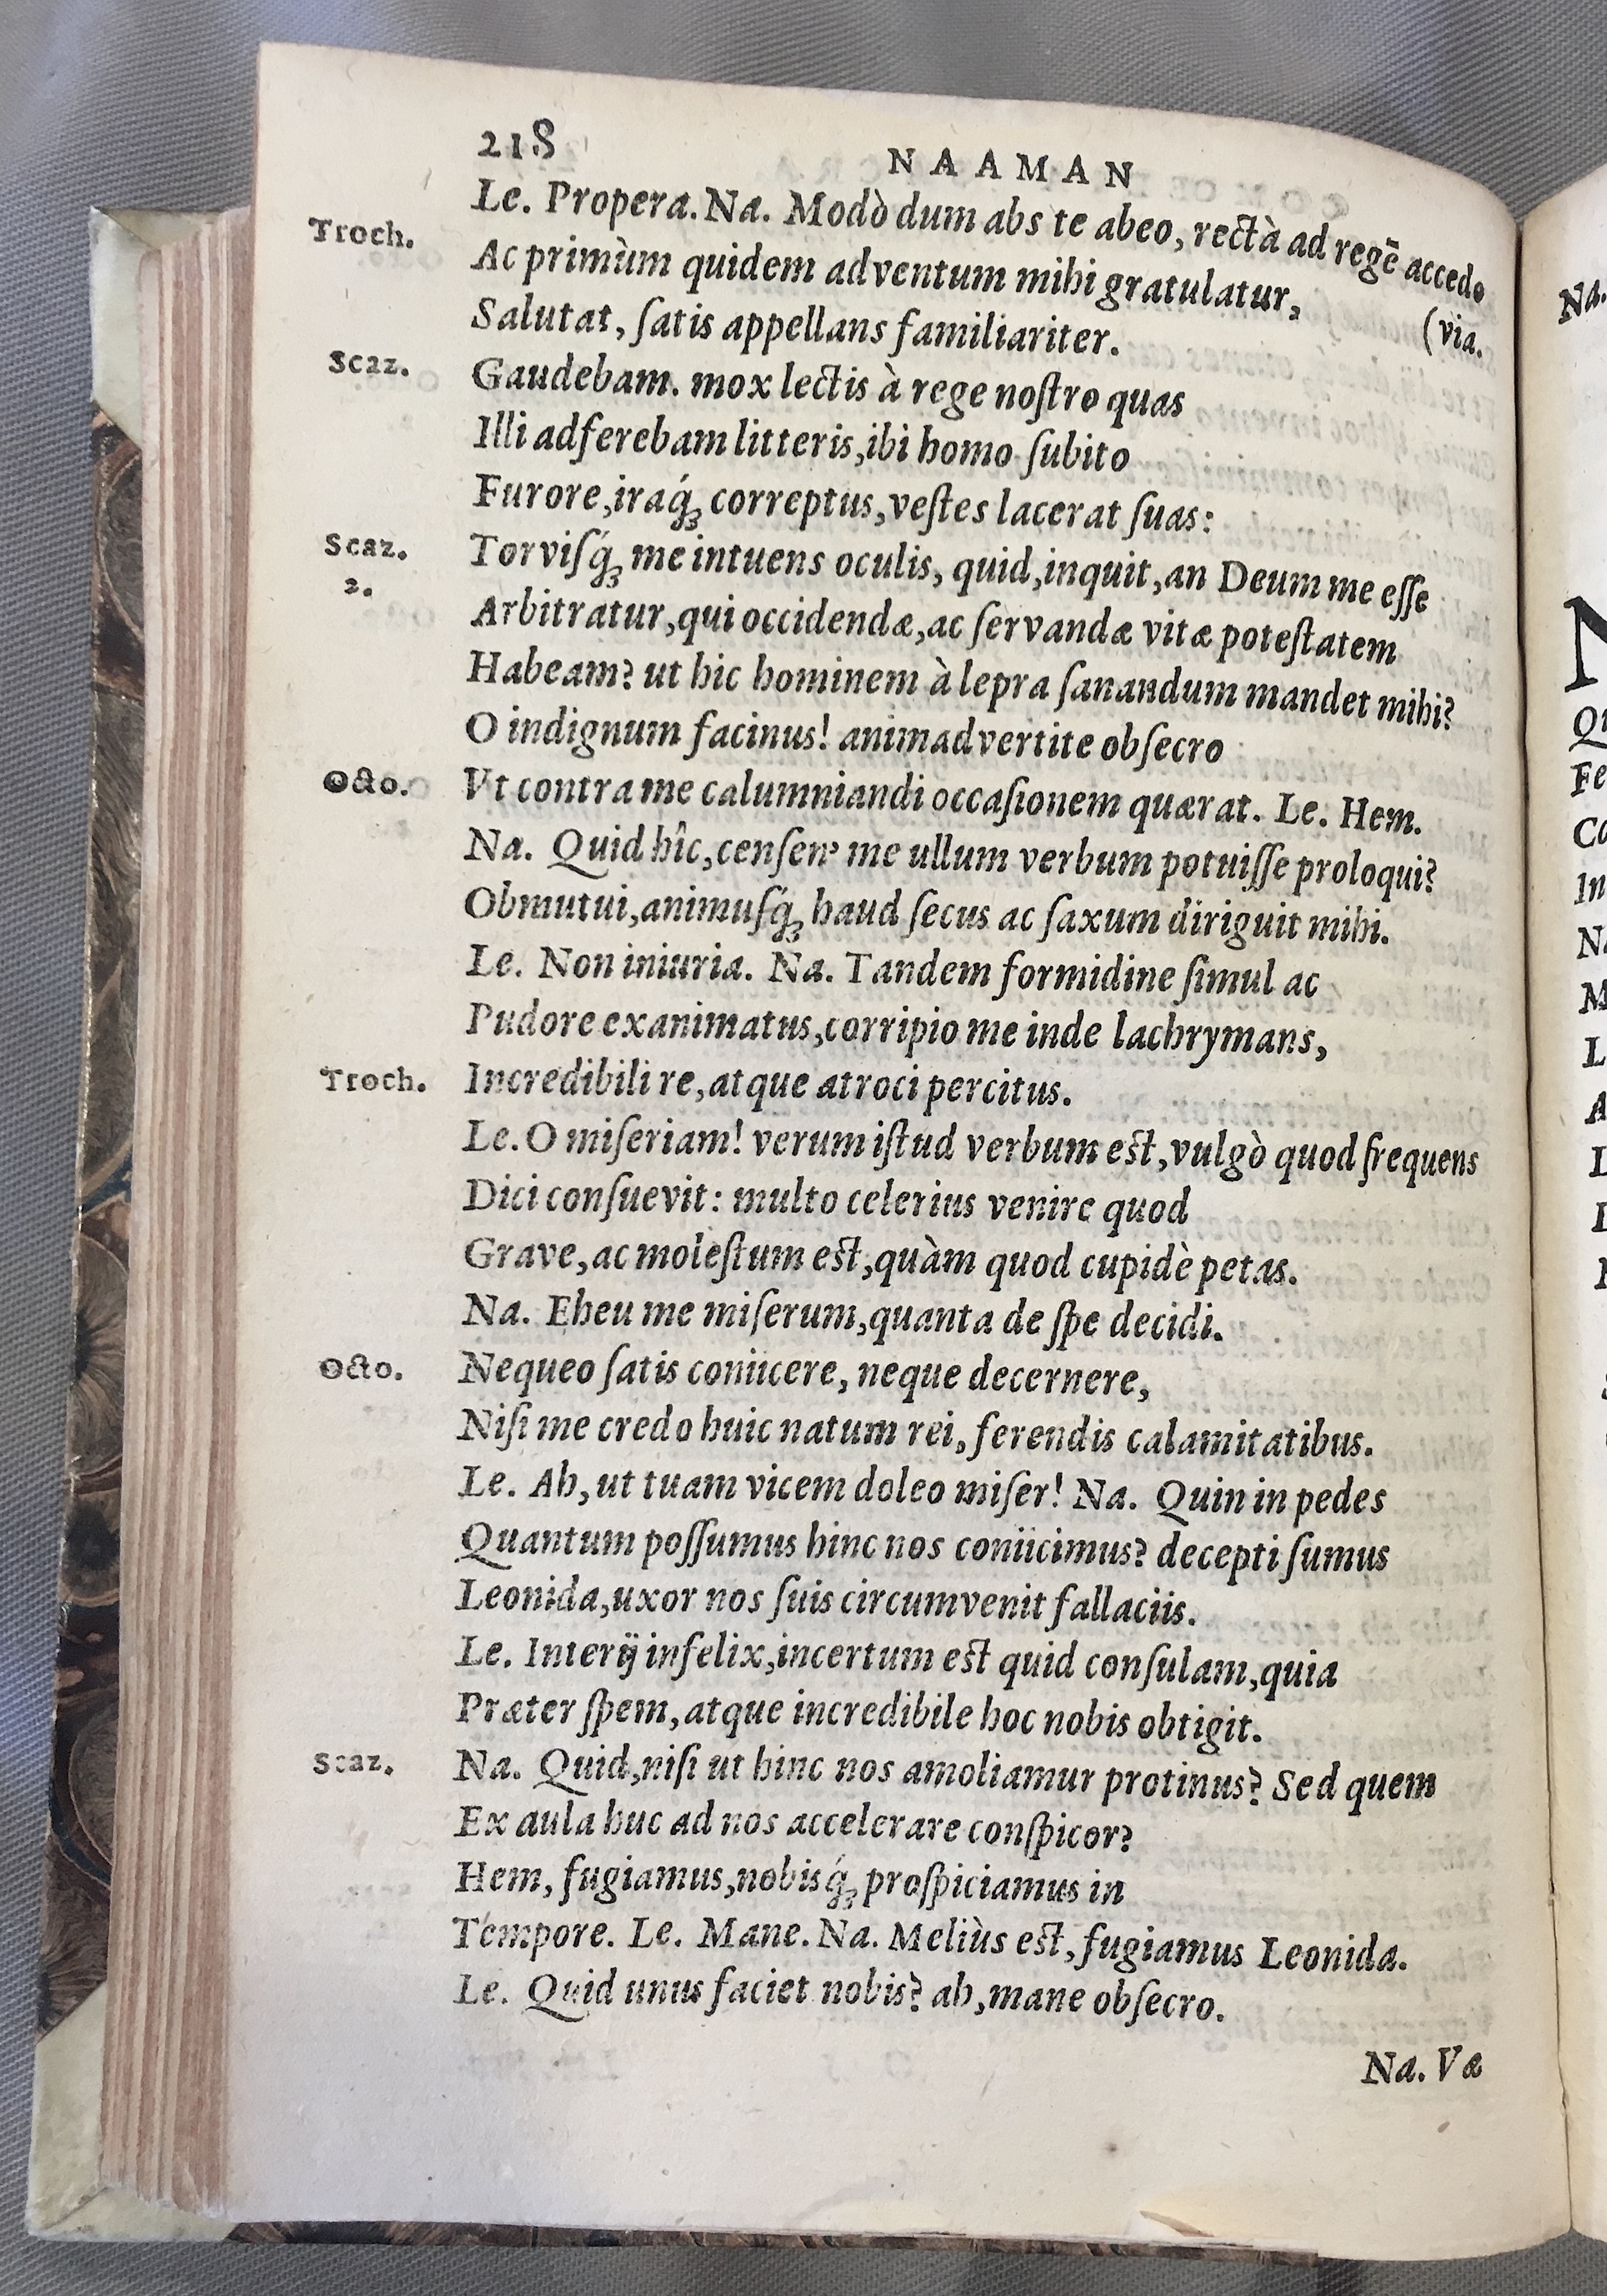 218
NAAMAN
Le. Propera. Na. Modò dum abs te abeo, rectà ad regē accedo
Troch. Ac primùm quidem adventum mihi gratulatur, (via.
Salutat, ſatis appellans familiariter.
Scaz. Gaudebam. mox lectis à rege noſtro quas
Illi adferebam litteris, ibi homo ſubito
Furore, iraq́; correptus, veſtes lacerat ſuas:
Scaz. 2. Torviſq́; me intuens oculis, quid, inquit, an Deum me eſſe
Arbitratur, qui occidendæ, ac ſervandæ vitæ poteſtatem
Habeam? ut hic hominem à lepra ſanandum mandet mihi?
O indignum facinus! animadvertite obſecro
Octo. Vt contra me calumniandi occaſionem quærat. Le. Hem.
Na. Quid hîc, cenſen' me ullum verbum potuiſſe proloqui?
Obmutui, animuſq́; haud ſecus ac ſaxum diriguit mihi.
Le. Non iniuria. Na. Tandem formidine ſimul ac
Pudore exanimatus, corripio me inde lachrymans,
Troch. Incredibili re, atque atroci percitus.
Le. O miſeriam! verum iſtud verbum eſt, vulgò quod frequens
Dici conſuevit: multo celerius venire quod
Grave, ac moleſtum eſt, quàm quod cupidè petas.
Na. Eheu me miſerum, quanta de ſpe decidi.
Octo. Nequeo ſatis coniicere, neque decernere,
Niſi me credo huic natum rei, ferendis calamitatibus.
Le. Ah, ut tuam vicem doleo miſer! Na. Quin in pedes
Quantum poſſumus hinc nos coniicimus? decepti ſumus
Leonida, uxor nos ſuis circumvenit fallaciis.
Le. Interij infelix, incertum eſt quid conſulam, quia
Præter ſpem, atque incredibile hoc nobis obtigit.
Scaz. Na. Quid, niſi ut hinc nos amoliamur protinus? Sed quem
Ex aula huc ad nos accelerare conſpicor?
Hem, fugiamus, nobisq́; proſpiciamus in
Tempore. Le. Mane. Na. Meliùs eſt, fugiamus Leonida.
Le. Quid unus faciet nobis? ah, mane obſecro.
Na. Væ